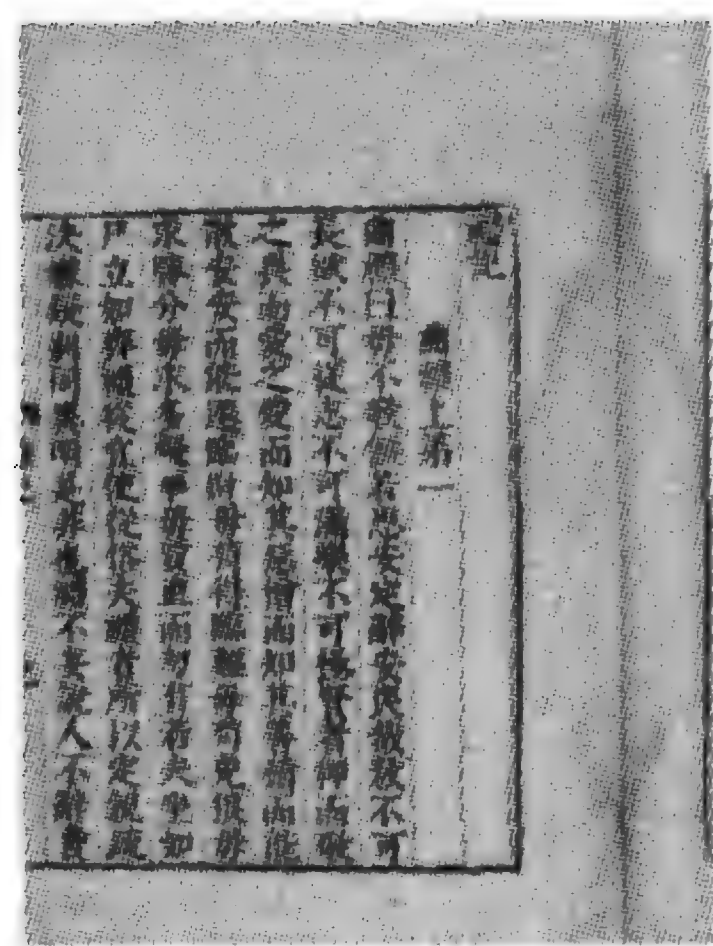 曲禮上第一
曲禮曰毋不敬儼若思安定辭安民哉敖不可
長欲不可從志不可滿樂不可極賢者狎而敬
之畏而愛之愛而知其惡憎而知其善積而能
散安安而能遷臨財毋苟得臨難毋苟免很毋
求勝分毋求多疑事毋質直而勿有若夫坐如
尸立如齊禮從宜使從俗夫禮者所以定親疏
決嫌疑別同異明是非也禮不妄說人不辭費